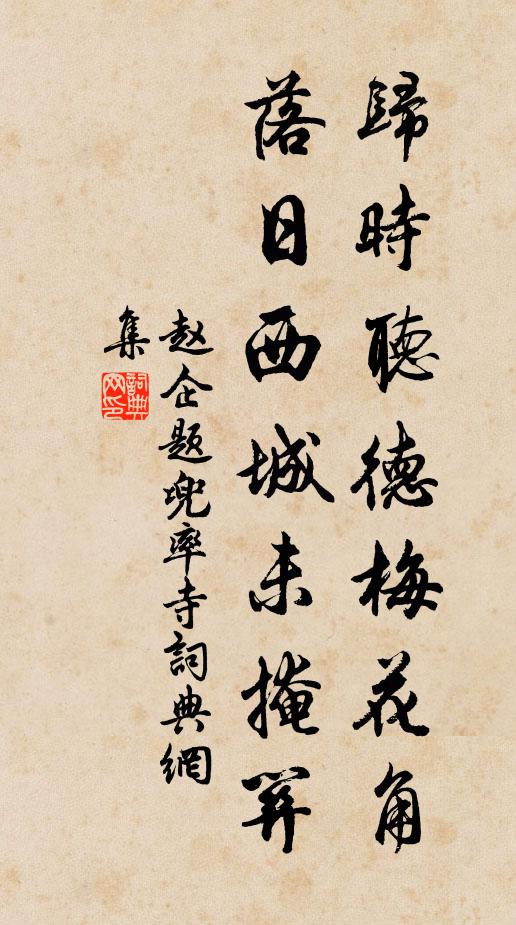 歸時聽德梅花角
落日西城未掩關
赵企题兜率寺詞典網
集
詞典网印